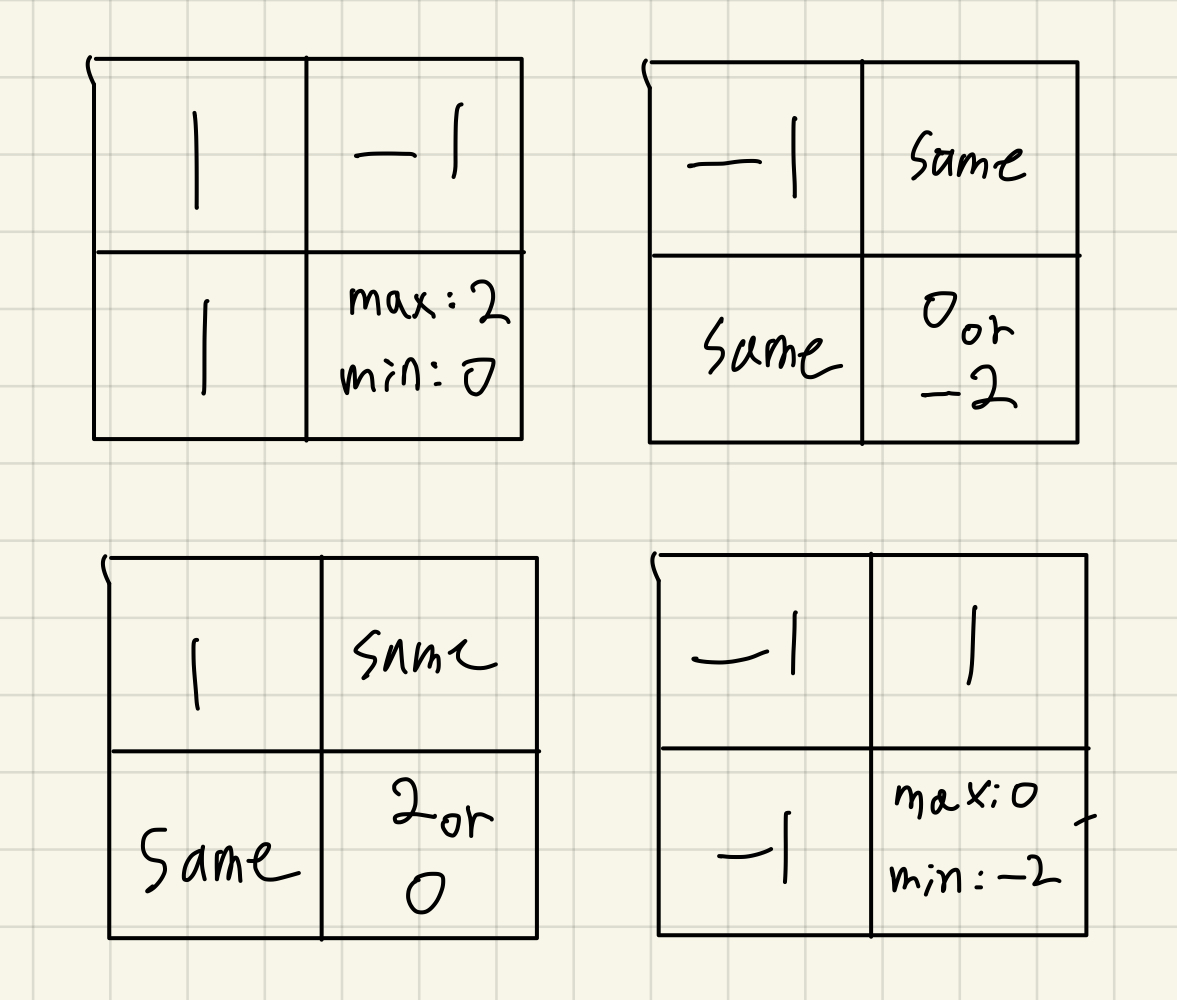 1
-1
1
max: 2
min: 0
-1
same
same
0 or
-2
1
same
same
2 or
0
-1
1
-1
max: 0
min: -2